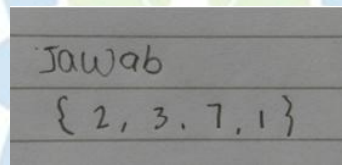 Jawab
{ 2, 3. 7, 1 }